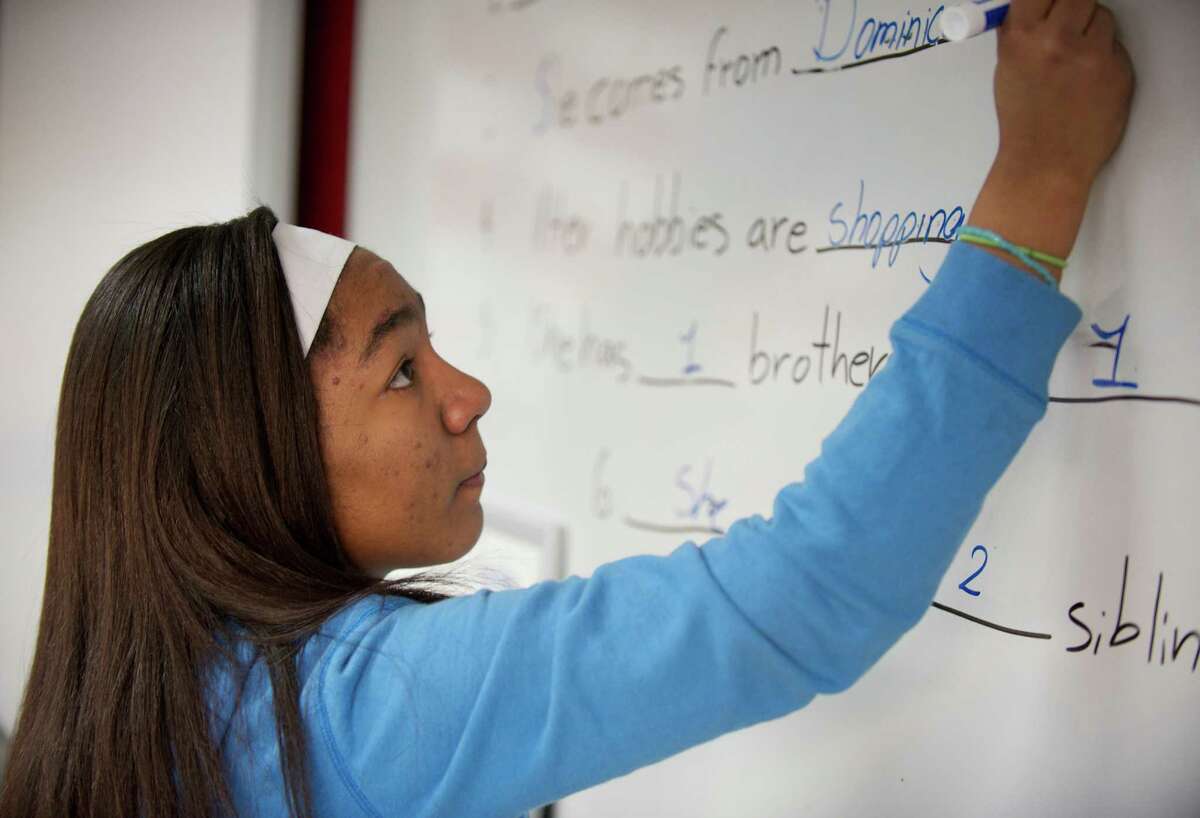 Se comes from Dominic
4 Her hobbies are shopping,
5 She has 1 brother 1
6 She
2 siblin